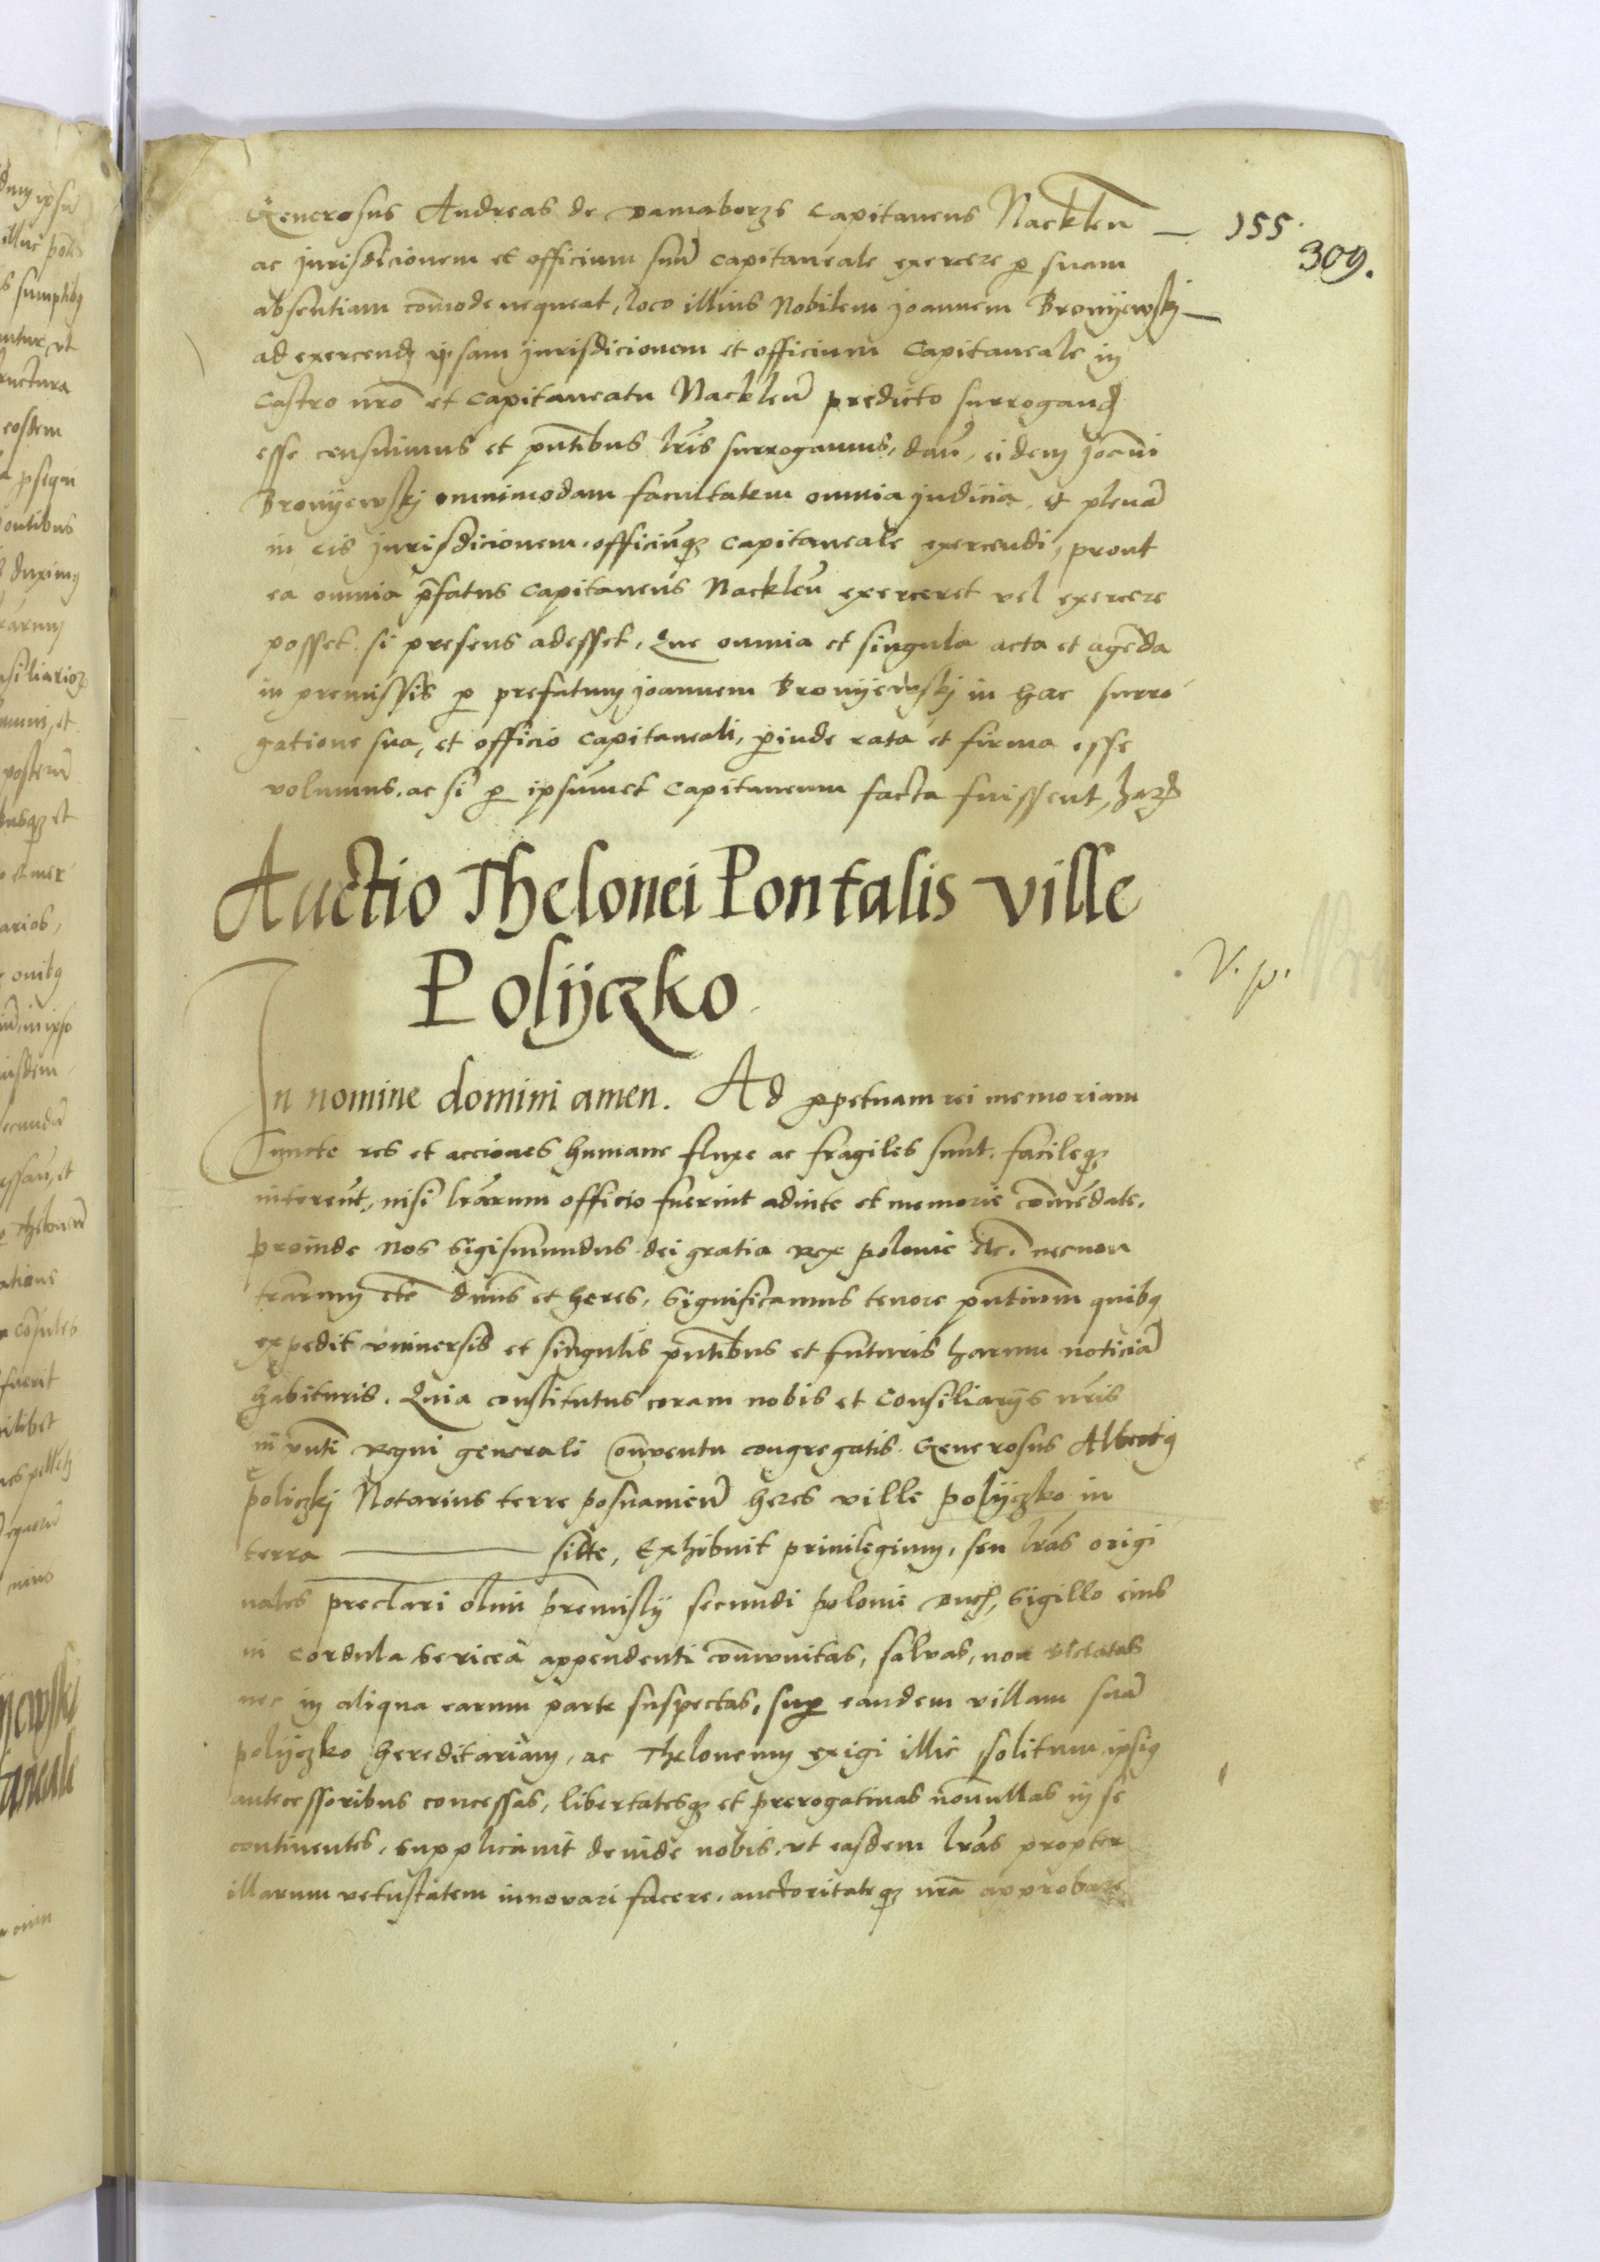 155.
309.
Generosus Andreas de Damaborzs Capitaneus Nacklen̄
ac jurisdicionem et officium suū capitaneale exercere p suam
absentiam com̄ode nequeat, loco illius Nobilem Joannem Bronyewskj
ad exercend ipsam jurisdicionem et officium Capitaneale in
Castro nr̄o et Capitaneatu Nacklen̄ predicto surrogand
esse censuimus et pn̄tibus lr̄is surrogamus, dan̄, eidem Joan̄i
Bronyewskj omnimodam facultatem omnia judicia, et plenā
in eis jurisdicionem, officiūq3 Capitaneale exercendi, prout
ea omnia p̄fatus Capitaneus Nacklen̄ exerceret vel exercere
posset, si presens adesset, Que omnia et singula acta et agēda
in premissis p prefatum Joannem Bronyewskj in hac surro
gatione sua, et officio Capitaneali, pinde rata et firma esse
volumus, ac si p ipsūmet Capitaneum facta fuissent, har
Auctio Thelonei Pontalis ville
Polyczko
V. p.
In nomine domini amen. Ad ppetuam rei memoriam
Cuncte res et acciones humane fluxe ac fragiles sunt, facileq3
intereūt, nisi lr̄arum officio fuerint adiute et memorie com̄ēdate.
proinde Nos Sigismundus dei gratia Rex polonie etc. necnon
trārum etc̄ dn̄us et heres, Significamus tenore pn̄tium quibq
expedit vniuersis et singulis pn̄tibus et futuris harum noticiā
habituris. Quia constitutus coram nobis et Consiliarijs nr̄is
in pn̄ti Regni generali Conventu congregatis Generosus Albertq
policzkj Notarius terre posnanien̄ heres ville polyczko in
terra sitte, Exhibuit priuilegium, seu lr̄as origi
nales preclari olim premisly secundi polonie Ducis, Sigillo eius
in Cordula sericea appendenti com̄unitas, saluas, non viciatas
nec in aliqua earum parte suspectas, sup eandem villam suā
polyczko hereditariam, ac Theloneum exigi illic solitum ipsiq
antecessoribus concessas, libertatesq3 et prerogatiuas non̄ullas in se
continentes, supplicauit deinde nobis, vt easdem lr̄as propter
illarum vetustatem innovari facere, auctoritateq3 nr̄a approbare